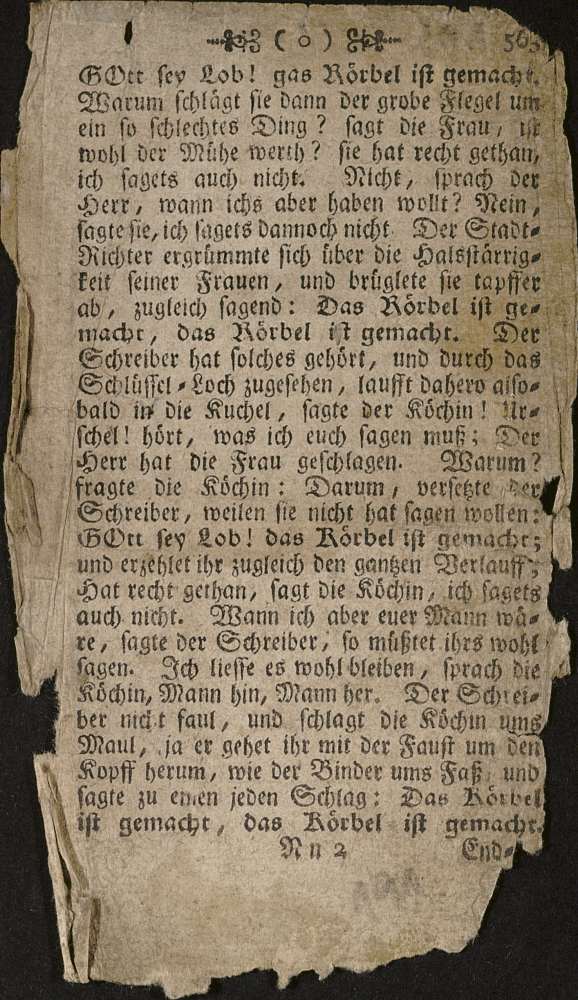 ( o ) 563
GOtt sey Lob! gas Körbel ist gemacht.
Warum schlägt sie dann der grobe Flegel um
ein so schlechtes Ding? sagt die Frau, ist
wohl der Mühe werth? sie hat recht gethan,
ich sagets auch nicht. Nicht, sprach der
Herr, wann ichs aber haben wollt? Nein,
sagte sie, ich sagets dannoch nicht. Der Stadt-
Richter ergrümmte sich über die Halsstärrig-
keit seiner Frauen, und brüglete sie tapffer
ab, zugleich sagend: Das Körbel ist ge-
macht, das Körbel ist gemacht. Der
Schreiber hat solches gehört, und durch das
Schlüssel-Loch zugesehen, laufft dahero also-
bald in die Kuchel, sagte der Köchin! Ur-
schel! hört, was ich euch sagen muß; Der
Herr hat die Frau geschlagen. Warum?
fragte die Köchin: Darum, versetzte der
Schreiber, weilen sie nicht hat sagen wollen:
GOtt sey Lob! das Körbel ist gemacht;
und erzehlet ihr zugleich den gantzen Verlauff;
Hat recht gethan, sagt die Köchin, ich sagets
auch nicht. Wann ich aber euer Mann wä-
re, sagte der Schreiber, so müßtet ihrs wohl
sagen. Ich liesse es wohl bleiben, sprach die
Köchin, Mann hin, Mann her. Der Schrei-
ber nicht faul, und schlagt die Köchin ums
Maul, ja er gehet ihr mit der Faust um den
Kopff herum, wie der Binder ums Faß, und
sagte zu einen jeden Schlag: Das Körbel
ist gemacht, das Körbel ist gemacht.
Nn 2 End-